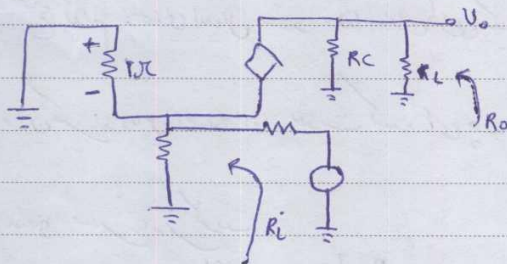 +
rπ
-
RC
RL
Vo
Ro
Ri